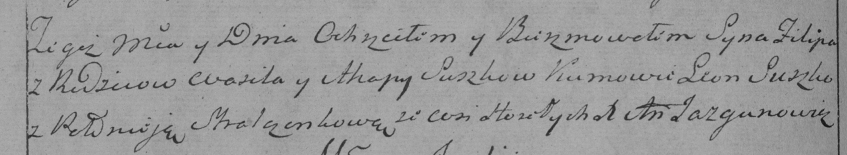 Tegoż Mca y Dnia Ochrzciłem y Bierzmowałem Syna Filipa
z Rodziców Wasila y Ahapy Suszkow Kumowie Leon Suszko
z Strałczonkową ze wsi X An Jazgunowicz